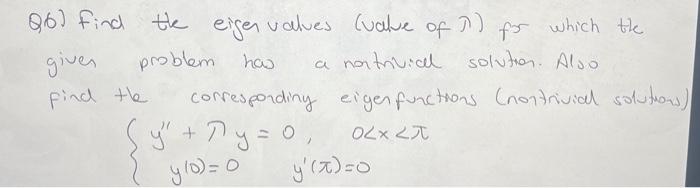 Q6) Find the eigenvalues (value of λ) for which the
given problem has a nontrivial solution. Also
find the corresponding eigenfunctions (nontrivial solutions)
y'' + λy = 0, 0<x<π
y(0)=0 y'(π)=0